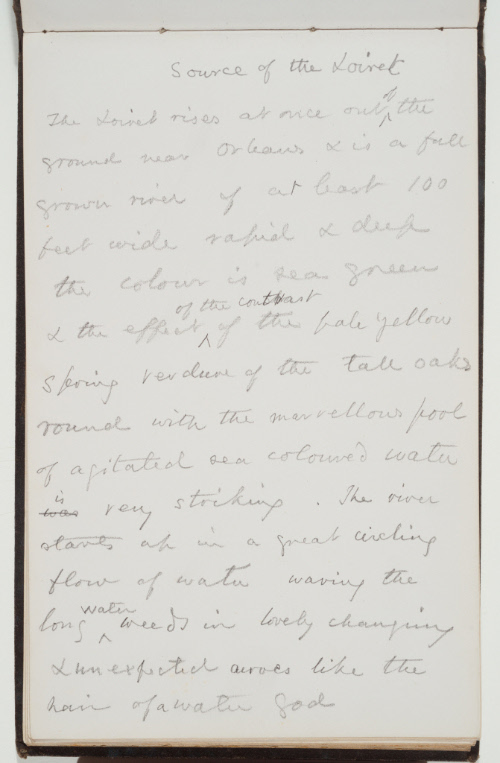 Source of the Loiret
The Loiret rises at once out of the
ground near Orleans & is a full
grown river of at least 100
feet wide rapid & deep
the colour is sea green
& the effect of the contrast of the pale yellow
spring verdure of the tall oaks
round with the marvellous pool
of agitated sea coloured water
was is very striking. The river
starts up in a great circling
flow of water waving the
long water weeds in lovely changing
& unexpected curves like the
hair of a water god